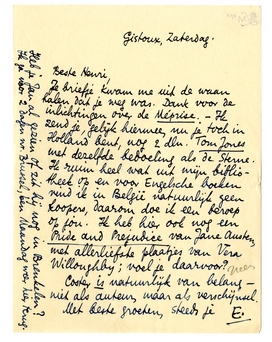 Gistoux, Zaterdag.
Beste Henri,
Je briefje kwam me uit de waan
halen dat je weg was. Dank voor de
inlichtingen over de Méprise. – Ik
zend je, gelijk hiermee, nu je toch in
Holland bent, nog 2 dln. Tom Jones
met dezelfde bedoeling als de Sterne.
Ik ruim heel wat uit mijn biblio-
theek op en voor Engelsche boeken
vind ik in België natuurlijk geen
koopers, daarom doe ik een beroep
op jou. Ik heb hier ook nog een
Pride and Prejudice van Jane Austen
met allerliefste plaatjes van Vera
Willoughby; voel je daarvoor? neen
Coster is natuurlijk van belang –
niet als auteur, maar als verschijnsel.
Met beste groeten, steeds je E.
Heb je Jan al gezien of zit hij nog in Brenkelen?
Ik ga voor 2 dagen nr. Brussel, ben Maandag weer hier terug.